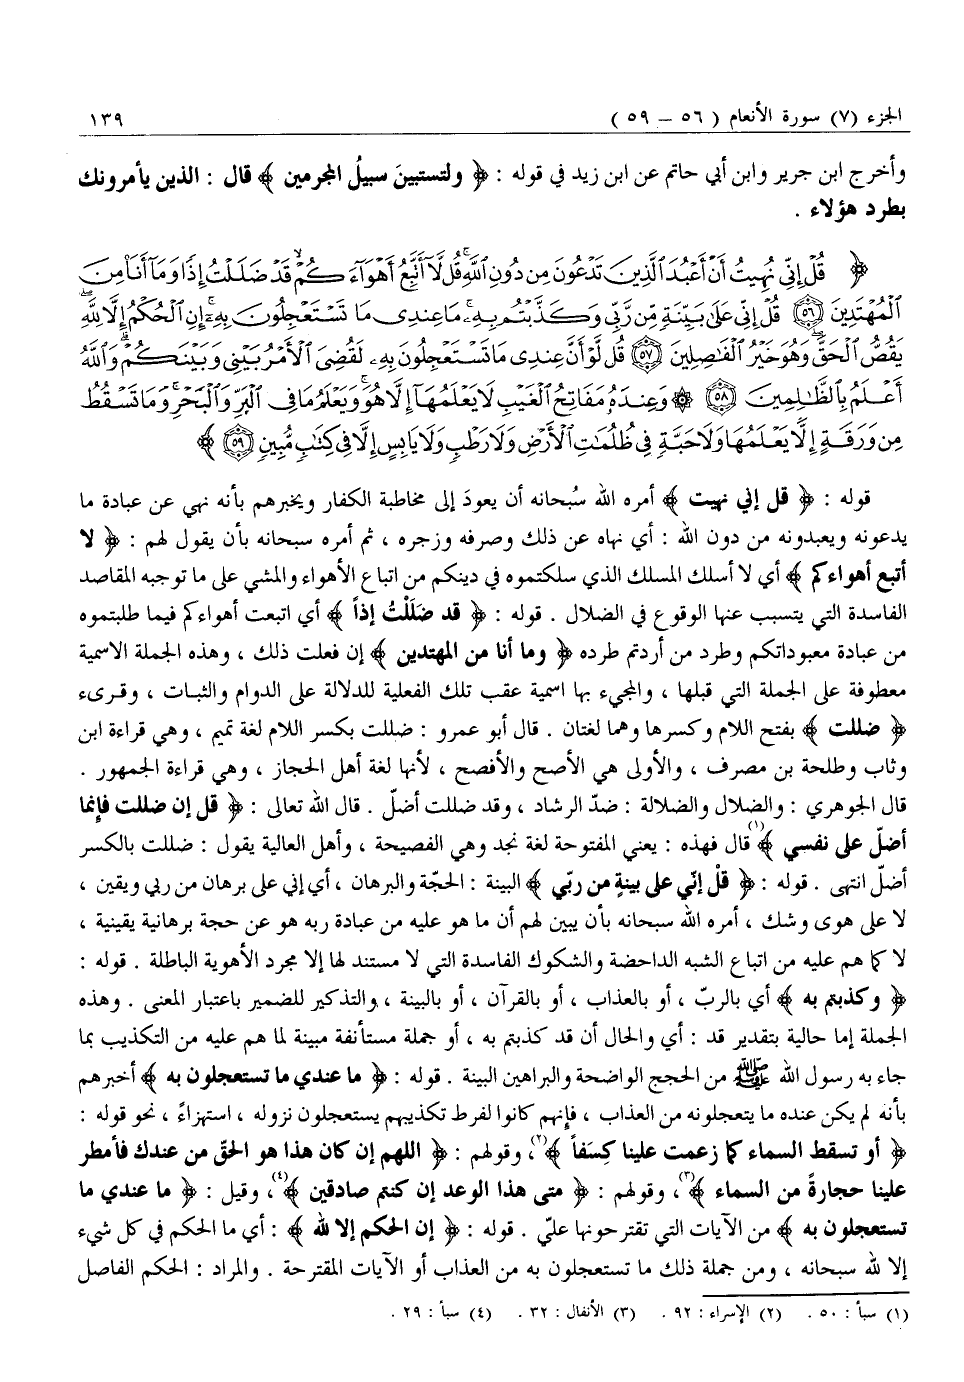 الجزء (٧) سورة الأنعام ( ٥٦ – ٥٩ ) ١٣٩
وأخرج ابن جرير وابن أبي حاتم عن ابن زيد في قوله : ﴿ ولتستبينَ سبيلُ المجرمين ﴾ قال : الذين يأمرونك
بطرد هؤلاء .
﴿ قُلْ إِنِّي نُهِيتُ أَنْ أَعْبُدَ الَّذِينَ تَدْعُونَ مِن دُونِ اللَّهِ قُل لَّا أَتَّبِعُ أَهْوَاءَكُمْ قَدْ ضَلَلْتُ إِذًا وَمَا أَنَا مِنَ
الْمُهْتَدِينَ ٥٦ قُلْ إِنِّي عَلَىٰ بَيِّنَةٍ مِّن رَّبِّي وَكَذَّبْتُم بِهِ مَا عِندِي مَا تَسْتَعْجِلُونَ بِهِ إِنِ الْحُكْمُ إِلَّا لِلَّهِ
يَقُصُّ الْحَقَّ وَهُوَ خَيْرُ الْفَاصِلِينَ ٥٧ قُل لَّوْ أَنَّ عِندِي مَا تَسْتَعْجِلُونَ بِهِ لَقُضِيَ الْأَمْرُ بَيْنِي وَبَيْنَكُمْ وَاللَّهُ
أَعْلَمُ بِالظَّالِمِينَ ٥٨ ۞ وَعِندَهُ مَفَاتِحُ الْغَيْبِ لَا يَعْلَمُهَا إِلَّا هُوَ وَيَعْلَمُ مَا فِي الْبَرِّ وَالْبَحْرِ وَمَا تَسْقُطُ
مِن وَرَقَةٍ إِلَّا يَعْلَمُهَا وَلَا حَبَّةٍ فِي ظُلُمَاتِ الْأَرْضِ وَلَا رَطْبٍ وَلَا يَابِسٍ إِلَّا فِي كِتَابٍ مُّبِينٍ ٥٩ ﴾
قوله : ﴿ قل إني نهيت ﴾ أمره الله سُبحانه أن يعودَ إلى مخاطبة الكفار ويخبرهم بأنه نهي عن عبادة ما
يدعونه ويعبدونه من دون الله : أي نهاه عن ذلك وصرفه وزجره ، ثم أمره سبحانه بأن يقول لهم : ﴿ لا
أتبع أهواءكم ﴾ أي لا أسلك المسلك الذي سلكتموه في دينكم من اتباع الأهواء والمشي على ما توجبه المقاصد
الفاسدة التي يتسبب عنها الوقوع في الضلال . قوله : ﴿ قد ضَلَلْتُ إذاً ﴾ أي اتبعت أهواءكم فيما طلبتموه
من عبادة معبوداتكم وطرد من أردتم طرده ﴿ وما أنا من المهتدين ﴾ إن فعلت ذلك ، وهذه الجملة الاسمية
معطوفة على الجملة التي قبلها ، والمجيء بها اسمية عقب تلك الفعلية للدلالة على الدوام والثبات ، وقرىء
﴿ ضللت ﴾ بفتح اللام وكسرها وهما لغتان . قال أبو عمرو : ضللت بكسر اللام لغة تميم ، وهي قراءة ابن
وثاب وطلحة بن مصرف ، والأولى هي الأصح والأفصح ، لأنها لغة أهل الحجاز ، وهي قراءة الجمهور .
قال الجوهري : والضلال والضلالة : ضدّ الرشاد ، وقد ضللت أضلّ . قال الله تعالى : ﴿ قل إن ضللت فإنما
أضلّ على نفسي ﴾(١) قال فهذه : يعني المفتوحة لغة نجد وهي الفصيحة ، وأهل العالية يقول : ضللت بالكسر
أضلّ انتهى . قوله : ﴿ قلْ إنّي على بينةٍ من ربّي ﴾ البينة : الحجّة والبرهان ، أي إني على برهان من ربي ويقين ،
لا على هوى وشك ، أمره الله سبحانه بأن يبين لهم أن ما هو عليه من عبادة ربه هو عن حجة برهانية يقينية ،
لا كما هم عليه من اتباع الشبه الداحضة والشكوك الفاسدة التي لا مستند لها إلا مجرد الأهوية الباطلة . قوله :
﴿ وكذبتم به ﴾ أي بالربّ ، أو بالعذاب ، أو بالقرآن ، أو بالبينة ، والتذكير للضمير باعتبار المعنى . وهذه
الجملة إما حالية بتقدير قد : أي والحال أن قد كذبتم به ، أو جملة مستأنفة مبينة لما هم عليه من التكذيب بما
جاء به رسول الله ﷺ من الحجج الواضحة والبراهين البينة . قوله : ﴿ ما عندي ما تستعجلون به ﴾ أخبرهم
بأنه لم يكن عنده ما يتعجلونه من العذاب ، فإنهم كانوا لفرط تكذيبهم يستعجلون نزوله ، استهزاءً ، نحو قوله :
﴿ أو تسقط السماء كما زعمت علينا كِسَفاً ﴾(٢) ، وقولهم : ﴿ اللهم إن كان هذا هو الحقّ من عندك فأمطر
علينا حجارةً من السماء ﴾(٣) ، وقولهم : ﴿ متى هذا الوعد إن كنتم صادقين ﴾(٤) ، وقيل : ﴿ ما عندي ما
تستعجلون به ﴾ من الآيات التي تقترحونها عليّ . قوله : ﴿ إن الحكم إلا لله ﴾ : أي ما الحكم في كل شيء
إلا لله سبحانه ، ومن جملة ذلك ما تستعجلون به من العذاب أو الآيات المقترحة . والمراد : الحكم الفاصل
(١) سبأ : ٥٠ . (٢) الإسراء : ٩٢ . (٣) الأنفال : ٣٢ . (٤) سبأ : ٢٩ .